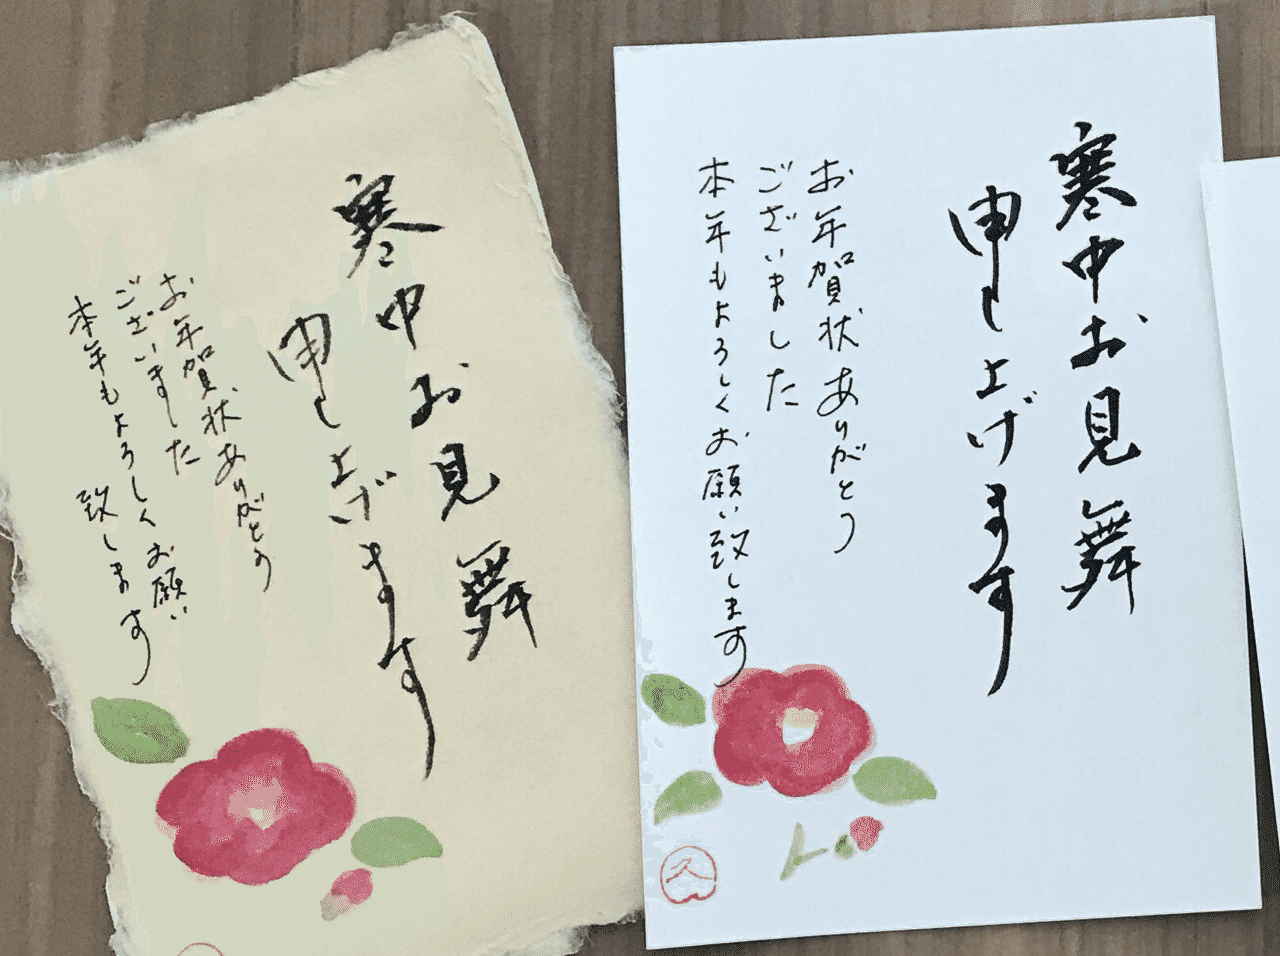 寒中お見舞
申し上げます
お年賀状ありがとう
ございました
本年もよろしくお願い
致します
寒中お見舞
申し上げます
お年賀状ありがとう
ございました
本年もよろしくお願い致します
久